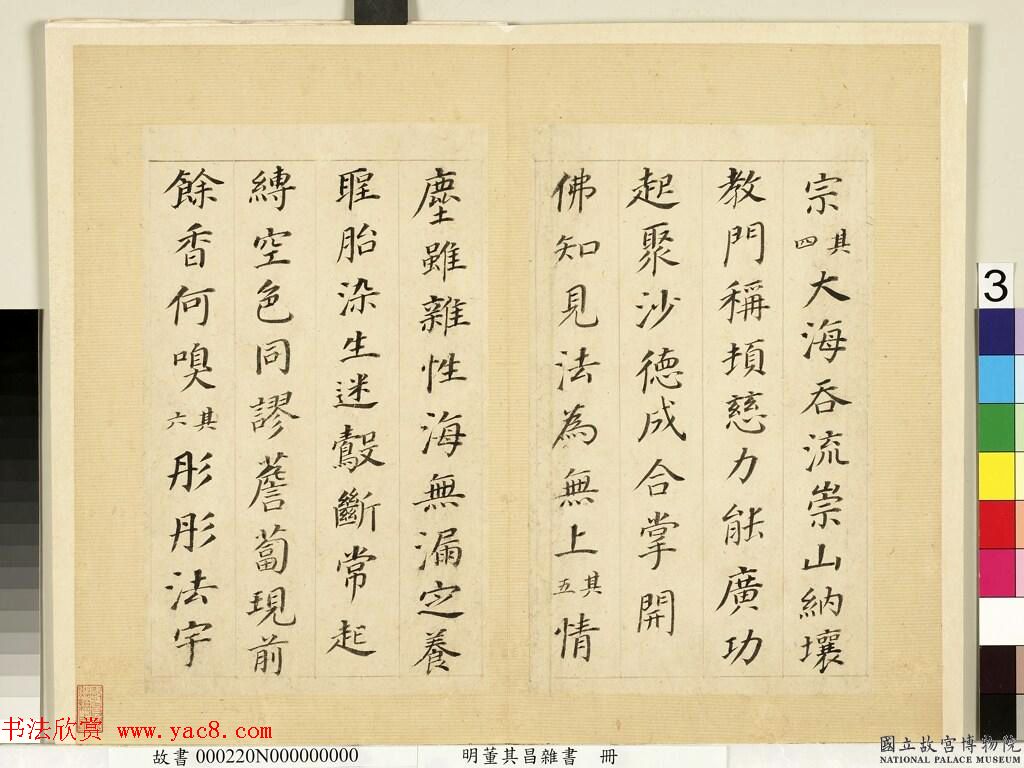 宗其四大海吞流崇山納壤
教門稱頓慈力能廣功
起聚沙德成合掌開
佛知見法為無上其五情
塵雖雜性海無漏定養
聖胎染生迷鷇斷常起
縛空色同謬薝蔔現前
餘香何嗅其六彤彤法宇
3
书法欣赏 www.yac8.com
故書 000220N000000000 明董其昌雜書 冊
國立故宮博物院
NATIONAL PALACE MUSEUM